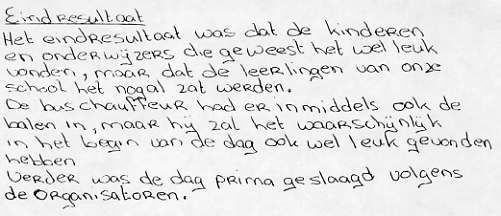 Eindresultaat
Het eindresultaat was dat de kinderen
en onderwijzers die geweest het wel leuk
vonden, maar dat de leerlingen van onze
school het nogal zat werden.
De buschauffeur had er inmiddels ook de
balen in, maar hij zal het waarschijnlijk
in het begin van de dag ook wel leuk gevonden
hebben
Verder was de dag prima geslaagd volgens
de organisatoren.